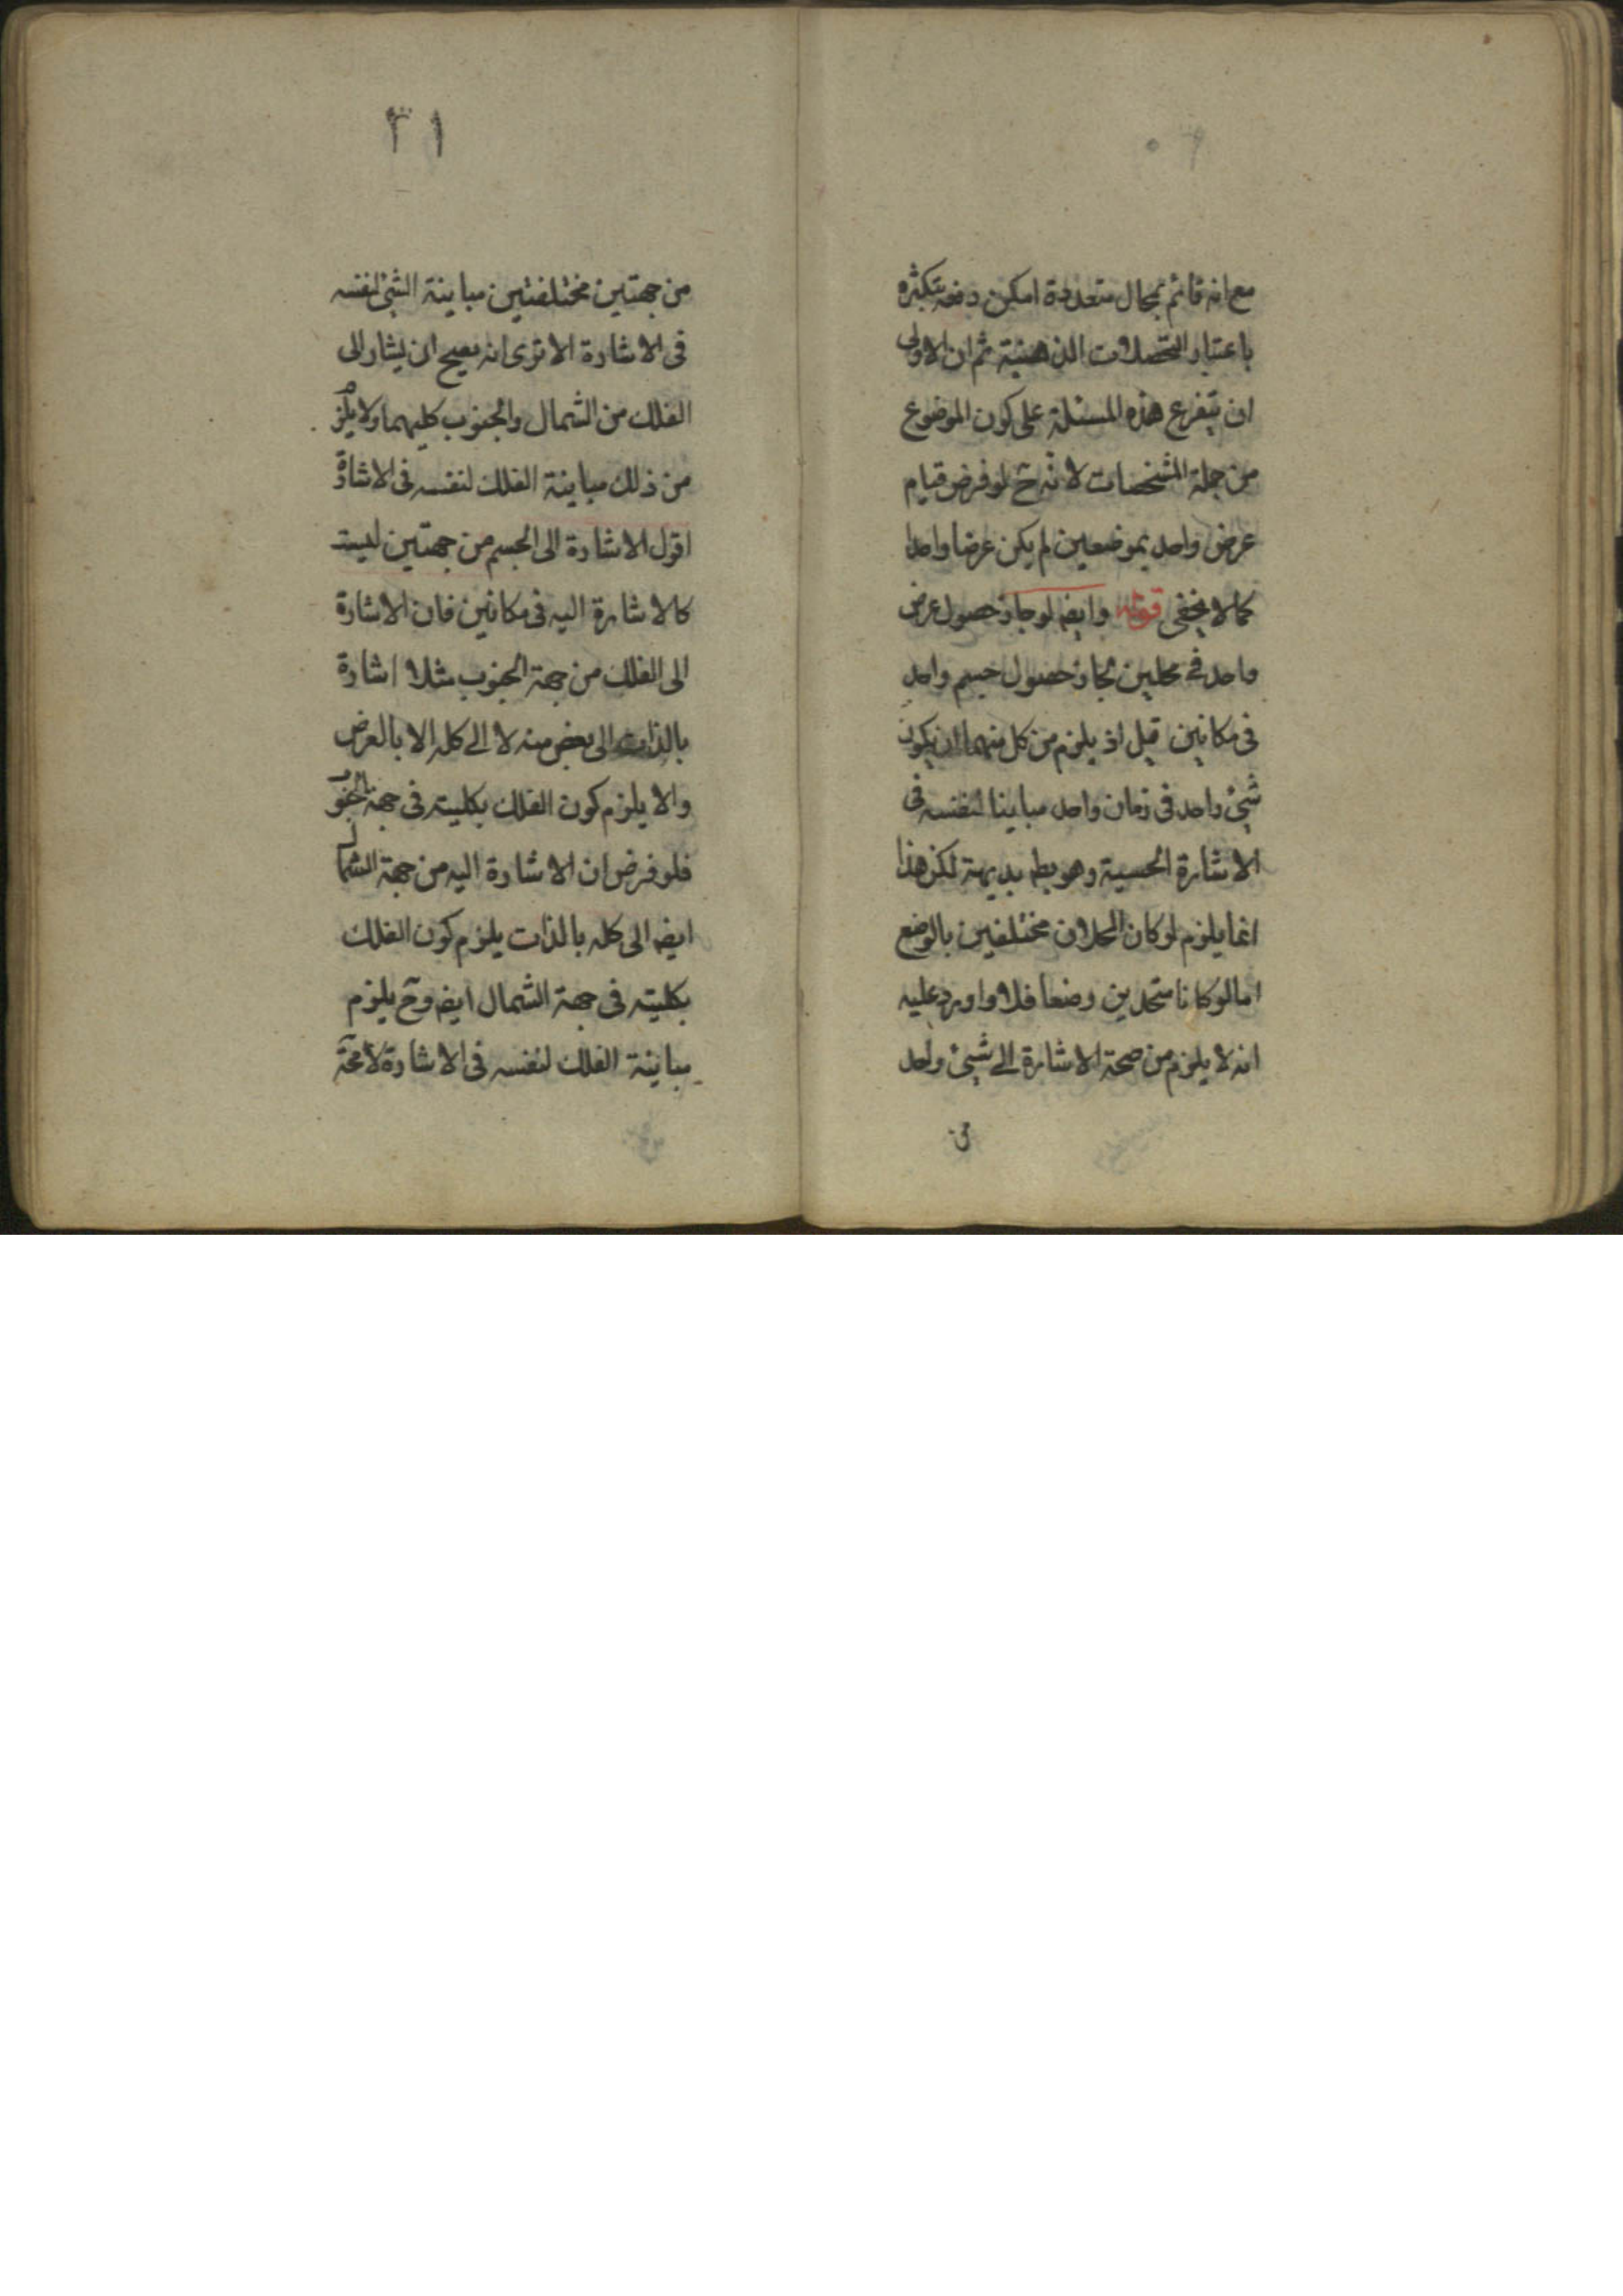 مع انه قائم بمحال متعددة امكن دفعه بتكثره
باعتبار التحصلات الذهنية ثم ان الاولى
ان يتفرع هذه المسئلة على كون الموضوع
من جملة المشخصات لانه ح لو فرض قيام
عرض واحد بموضعين لم يكن عرضا واحدا
كما لا يخفى قوله وايضا لو جاز حصول عرض
واحد في محلين لجاز حصول جسم واحد
في مكانين قيل اذ يلزم من كل منهما ان يكون
شيئ واحد في زمان واحد مباينا لنفسه في
الاشارة الحسية وهو بط بديهة لكن هذا
انما يلزم لو كان المحلان مختلفين بالوضع
اما لو كانا متحدين وضعا فلا واورد عليه
انه لا يلزم من صحة الاشارة الى شيئ واحد
من
٣١
من جهتين مختلفتين مباينة الشئ لنفسه
في الاشارة الا ترى انه يصح ان يشار الى
الفلك من الشمال والجنوب كليهما ولا يلزم
من ذلك مباينة الفلك لنفسه في الاشارة
اقول الاشارة الى الجسم من جهتين ليست
كالاشارة اليه في مكانين فان الاشارة
الى الفلك من جهة الجنوب مثلا اشارة
بالذات الى بعض منه لا الى كله الا بالعرض
والا يلزم كون الفلك بكليته في جهة الجنوب
فلو فرض ان الاشارة اليه من جهة الشمال
ايضا الى كله بالذات يلزم كون الفلك
بكليته في جهة الشمال ايضا وح يلزم
مباينة الفلك لنفسه في الاشارة لا محة